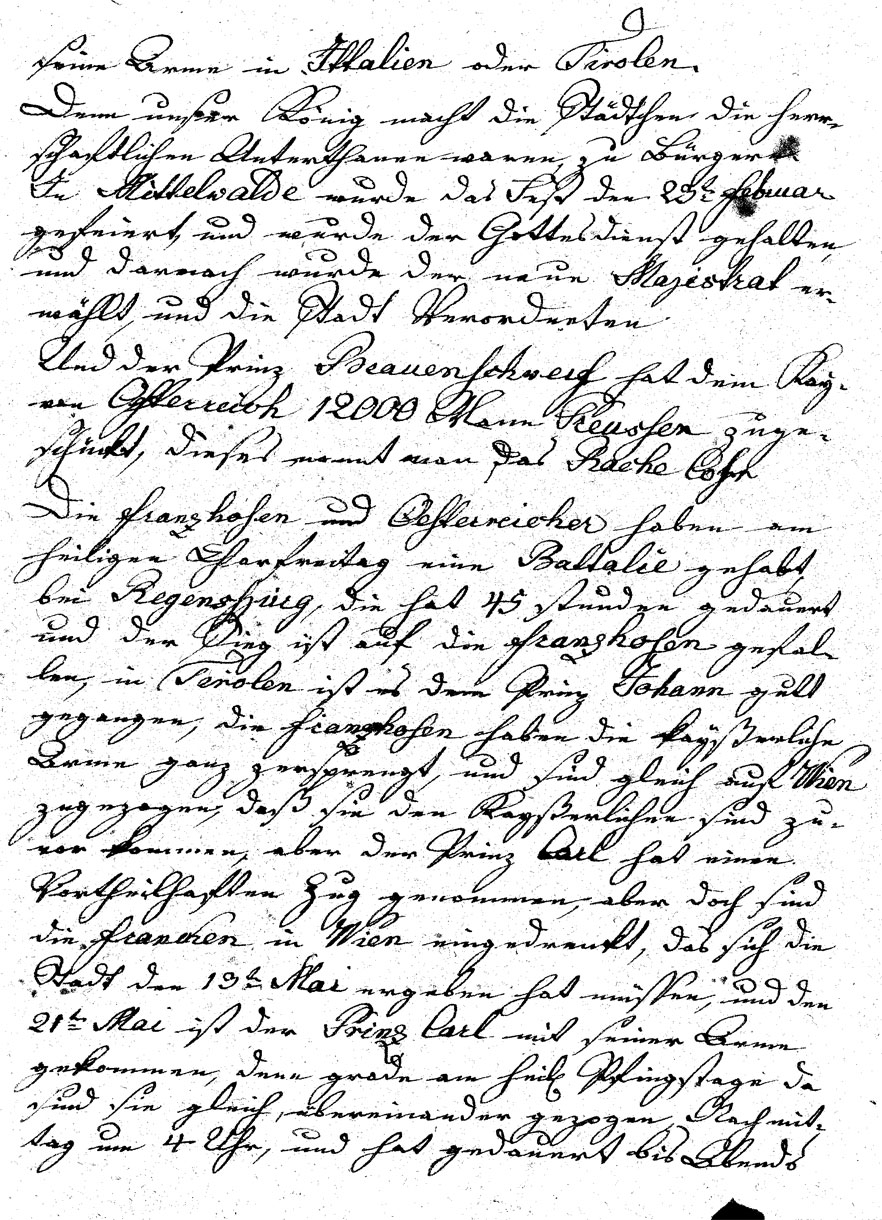 seine Arme in Ittalien oder Tirolen.
Denn unser König macht die Städtchen, die herr-
schaftlichen Unterthanen waren, zu Bürger
In Mittelwalde wurde das Fest den 23t Februar
gefeiert, und wurde der Gottesdienst gehalten,
und darnach wurde der neue Majistrat er-
wählt, und die Stadt Verordneten
Und der Prinz Brauenschweig hat dem Kay-
von Österreich 12000 Mann Preussen zuge-
schickt, dieses nennt man das Rache Cohr
Die Franzhosen und Oesterreicher haben am
heiligen Charfreitag eine Battalie gehabt,
bei Regenspurg, die hat 45 stunden gedauert
und der Sieg ist auf die Franzhosen gefal-
len, in Tirolen ist es dem Prinz Johann gutt
gegangen, die Franzhosen haben die kaÿßerliche
Arme ganz zersprengt, und sind gleich auf Wien
zugezogen, daß sie den Kayßerlichen sind zu-
vor kommen, aber der Prinz Carl hat einen
Vortheilhaften Zug genommen, aber doch sind
die Francken in Wien eingedrenkt, das sich die
Stadt den 13t Mai ergeben hat müssen, und den
21t Mai ist der Prinz Carl mit seiner Arme
gekommen, denn grade am heil Pfingstage da
sind sie gleich übereinander gezogen, Nach mit-
tag um 4 Uhr, und hat gedauert bis Abends